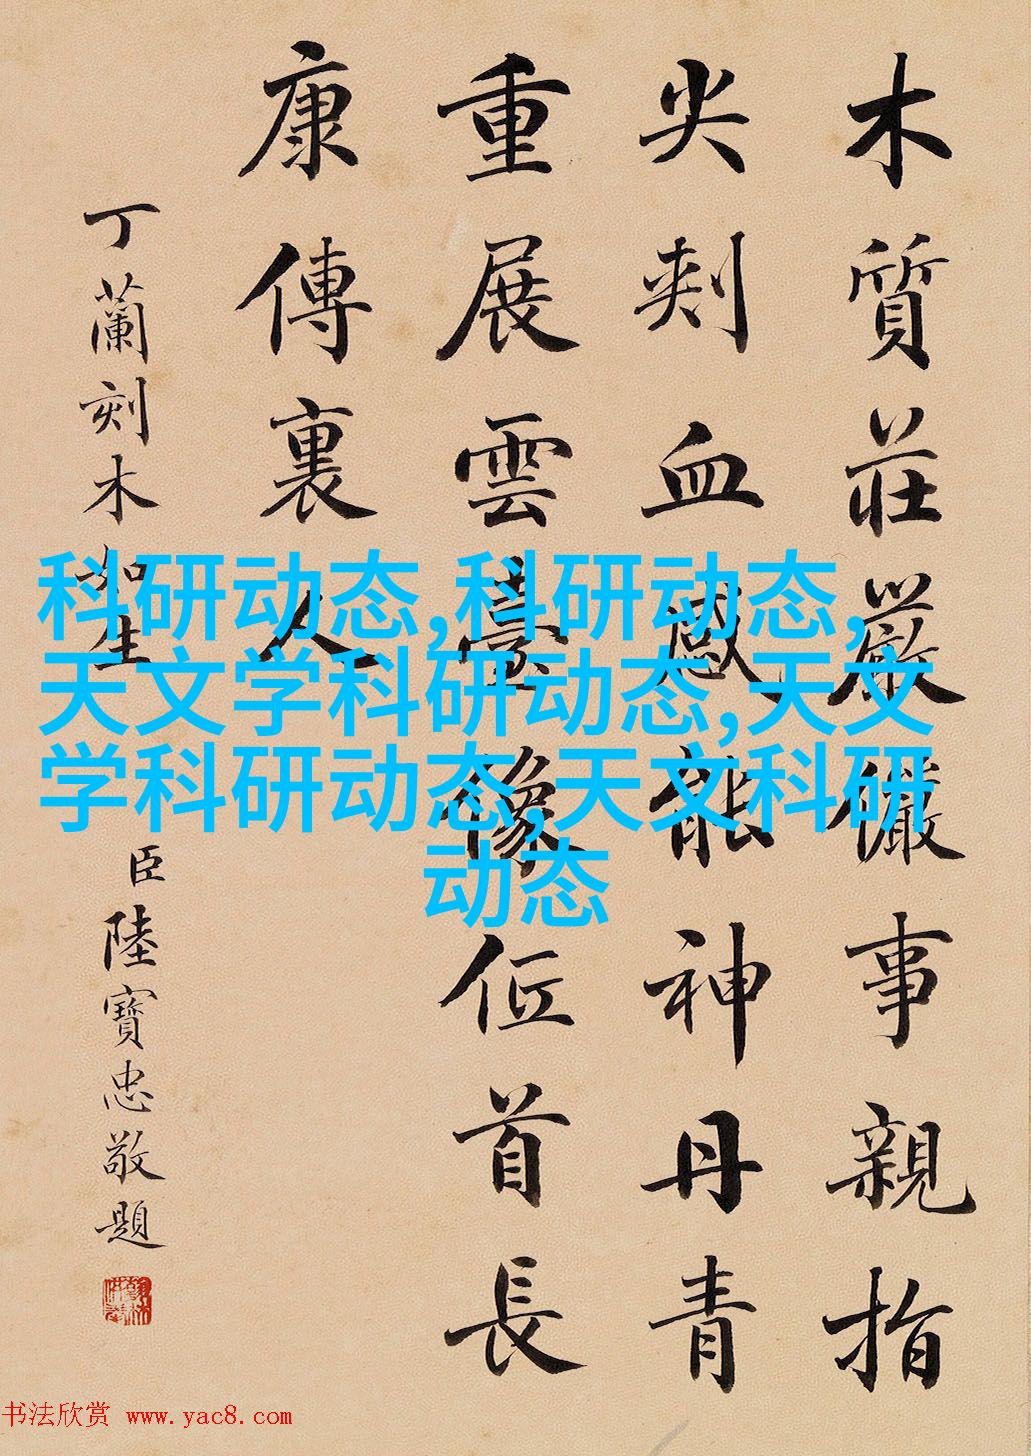 木質莊嚴儼事親指
尖刾血感能神丹青
重展雲臺像位首長
康傳裏人
丁蘭刻木如生
臣陸寶忠敬題
科研动态,科研动态,
天文学科研动态,天文
学科研动态,天文科研
动态
书法欣赏 www.yac8.com